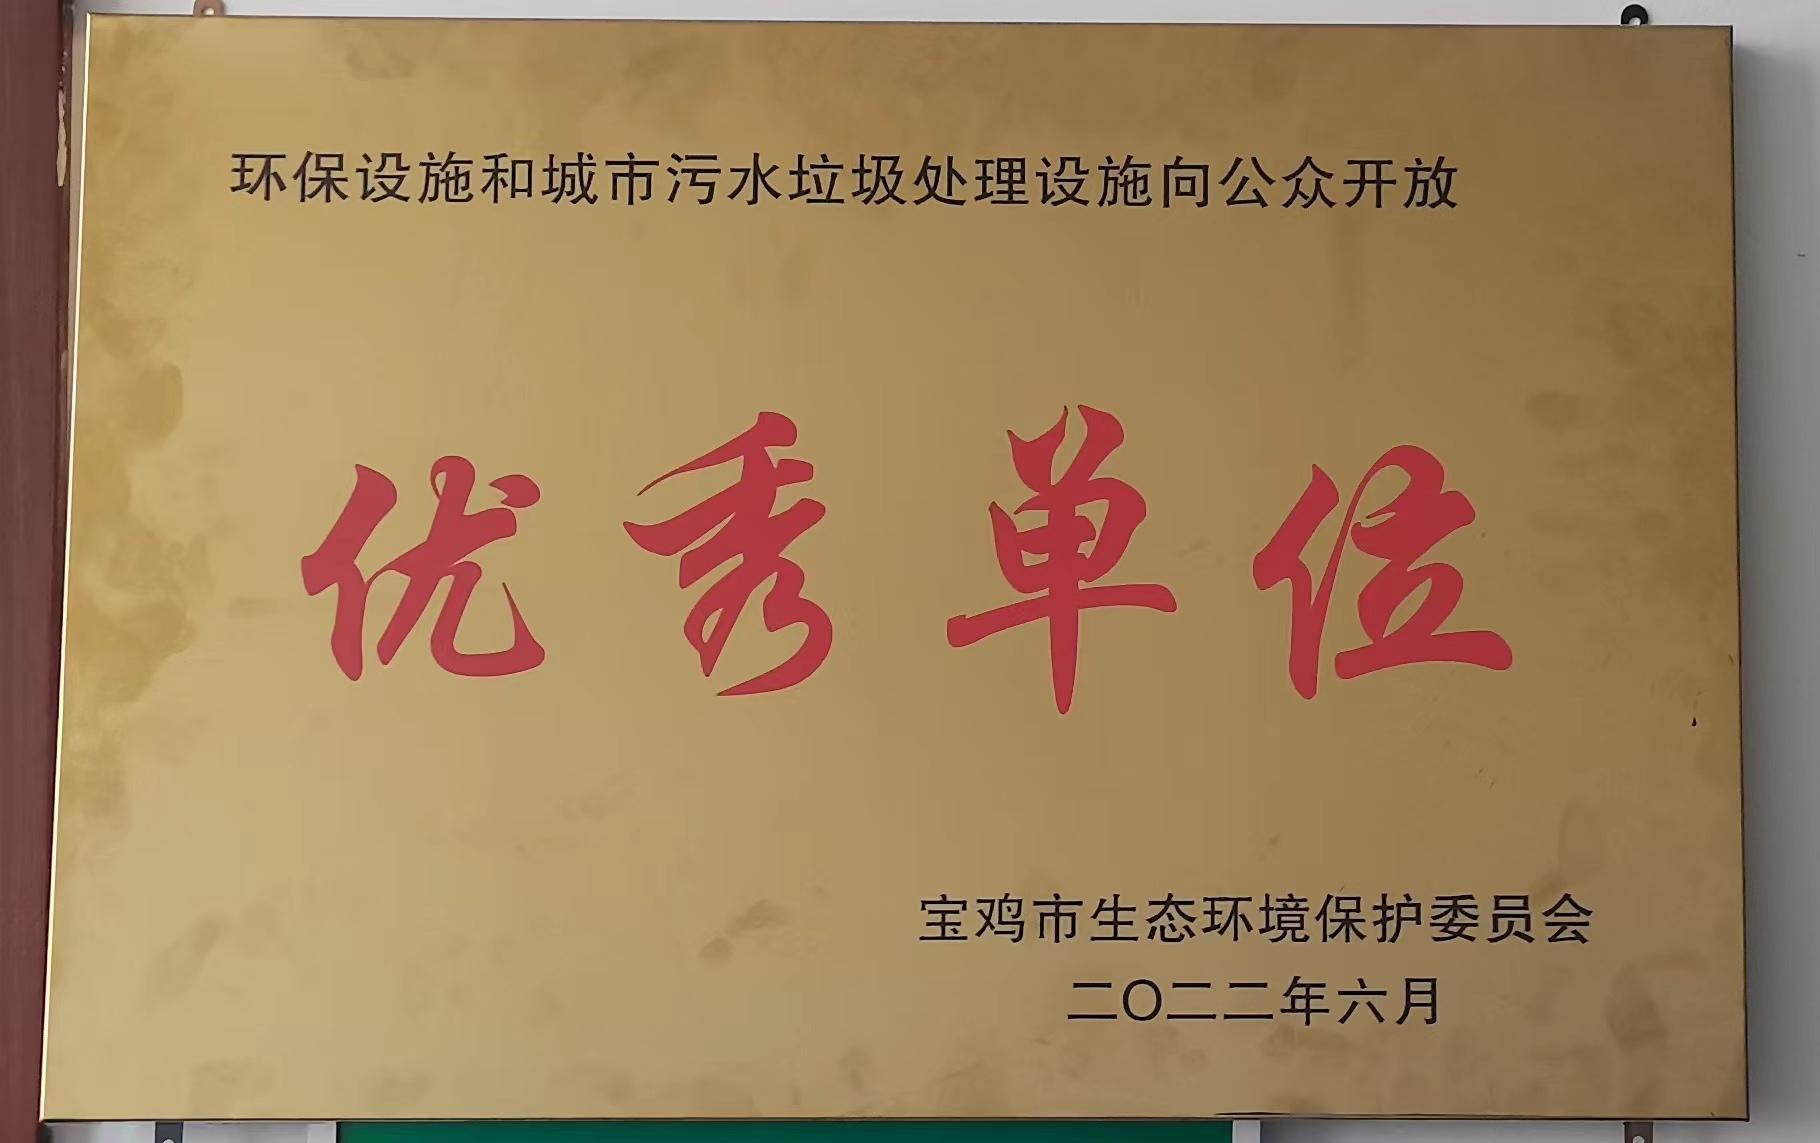 环保设施和城市污水垃圾处理设施向公众开放
优秀单位
宝鸡市生态环境保护委员会
二〇二二年六月